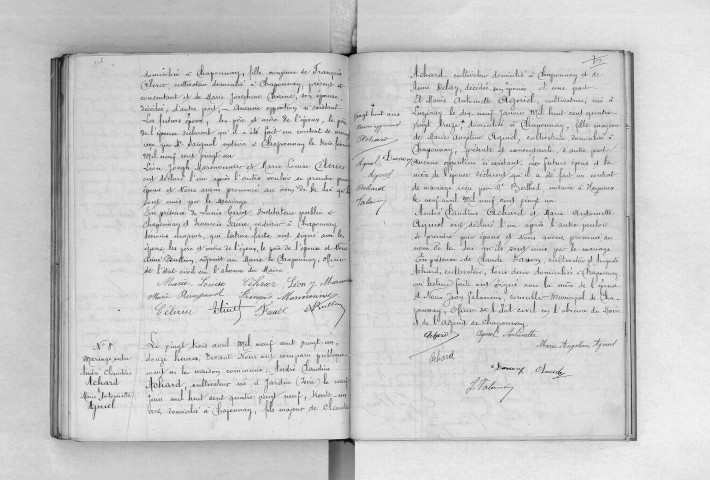 domiciliée à Chaponnay, fille mineure de François
Clerer, cultivateur domicilié à Chaponnay, présent et
consentant et de Marie Joséphine Charme, son épouse,
décédée, d'autre part. — Aucune opposition n'existant.
Les futurs époux, les père et mère de l'époux, le père
de l'épouse déclarent qu'il a été fait un contrat de mariage
reçu par Me notaire à Chaponnay le trois février
Mil neuf cent vingt un
Léon Joseph Marmonnier et Marie Louise Clerer
ont déclaré l'un après l'autre vouloir se prendre pour
époux et Nous avons prononcé au nom de la loi qu'ils
sont unis par le mariage.
En présence de Louis Instituteur public à
Chaponnay et François Faure, rentier à Chaponnay
témoins majeurs, qui lecture faite ont signé avec les
époux, les père et mère de l'époux, le père de l'épouse et Nous
adjoint au Maire de Chaponnay, Officier
de l'état civil en l'absence du Maire
Marie Louise Clerer Léon J.
Marie
Clerer
N° 8
Mariage entre
André Claudius
Achard
&
Marie Antoinette
Aguiel
Le vingt trois avril Mil neuf cent vingt un,
douze heures, devant Nous ont comparu publique-
ment en la maison commune: André Claudius
Achard, cultivateur né à Jardin (Isère) le neuf
Juin mil huit cent quatre vingt neuf, trente un
ans, domicilié à Chaponnay, fils majeur de Claude
vingt huit ans
Achard
Aguiel
Achard
Achard, cultivateur domicilié à Chaponnay et de
Anne Relay, décédée, son épouse, d'une part
Et Marie Antoinette Aguiel, cultivatrice, née à
le dix neuf Janvier Mil huit cent quatre
vingt treize, domiciliée à Chaponnay, fille majeure
de Marie Angéline Aguiel, cultivatrice domiciliée à
Chaponnay, présente et consentante d'autre part
Aucune opposition n'existant. Les futurs époux et la
mère de l'épouse déclarent qu'il a été fait un contrat
de mariage reçu par Me Berthet, notaire à Heyrieux
le neuf avril Mil neuf cent vingt un.
André Claudius Achard et Marie Antoinette
Aguiel ont déclaré l'un après l'autre vouloir
se prendre pour époux et Nous avons prononcé au
nom de la loi qu'ils sont unis par le mariage.
En présence de Claude cultivateur et Auguste
Achard, cultivateur, tous deux domiciliés à Chaponnay
qui lecture faite ont signé avec la mère de l'épouse
et Nous Jean conseiller Municipal de Cha-
ponnay, Officier de l'état civil en l'absence du Maire
& de l'Adjoint de Chaponnay.
Achard Aguiel Antoinette
Marie Angéline Aguiel
Achard